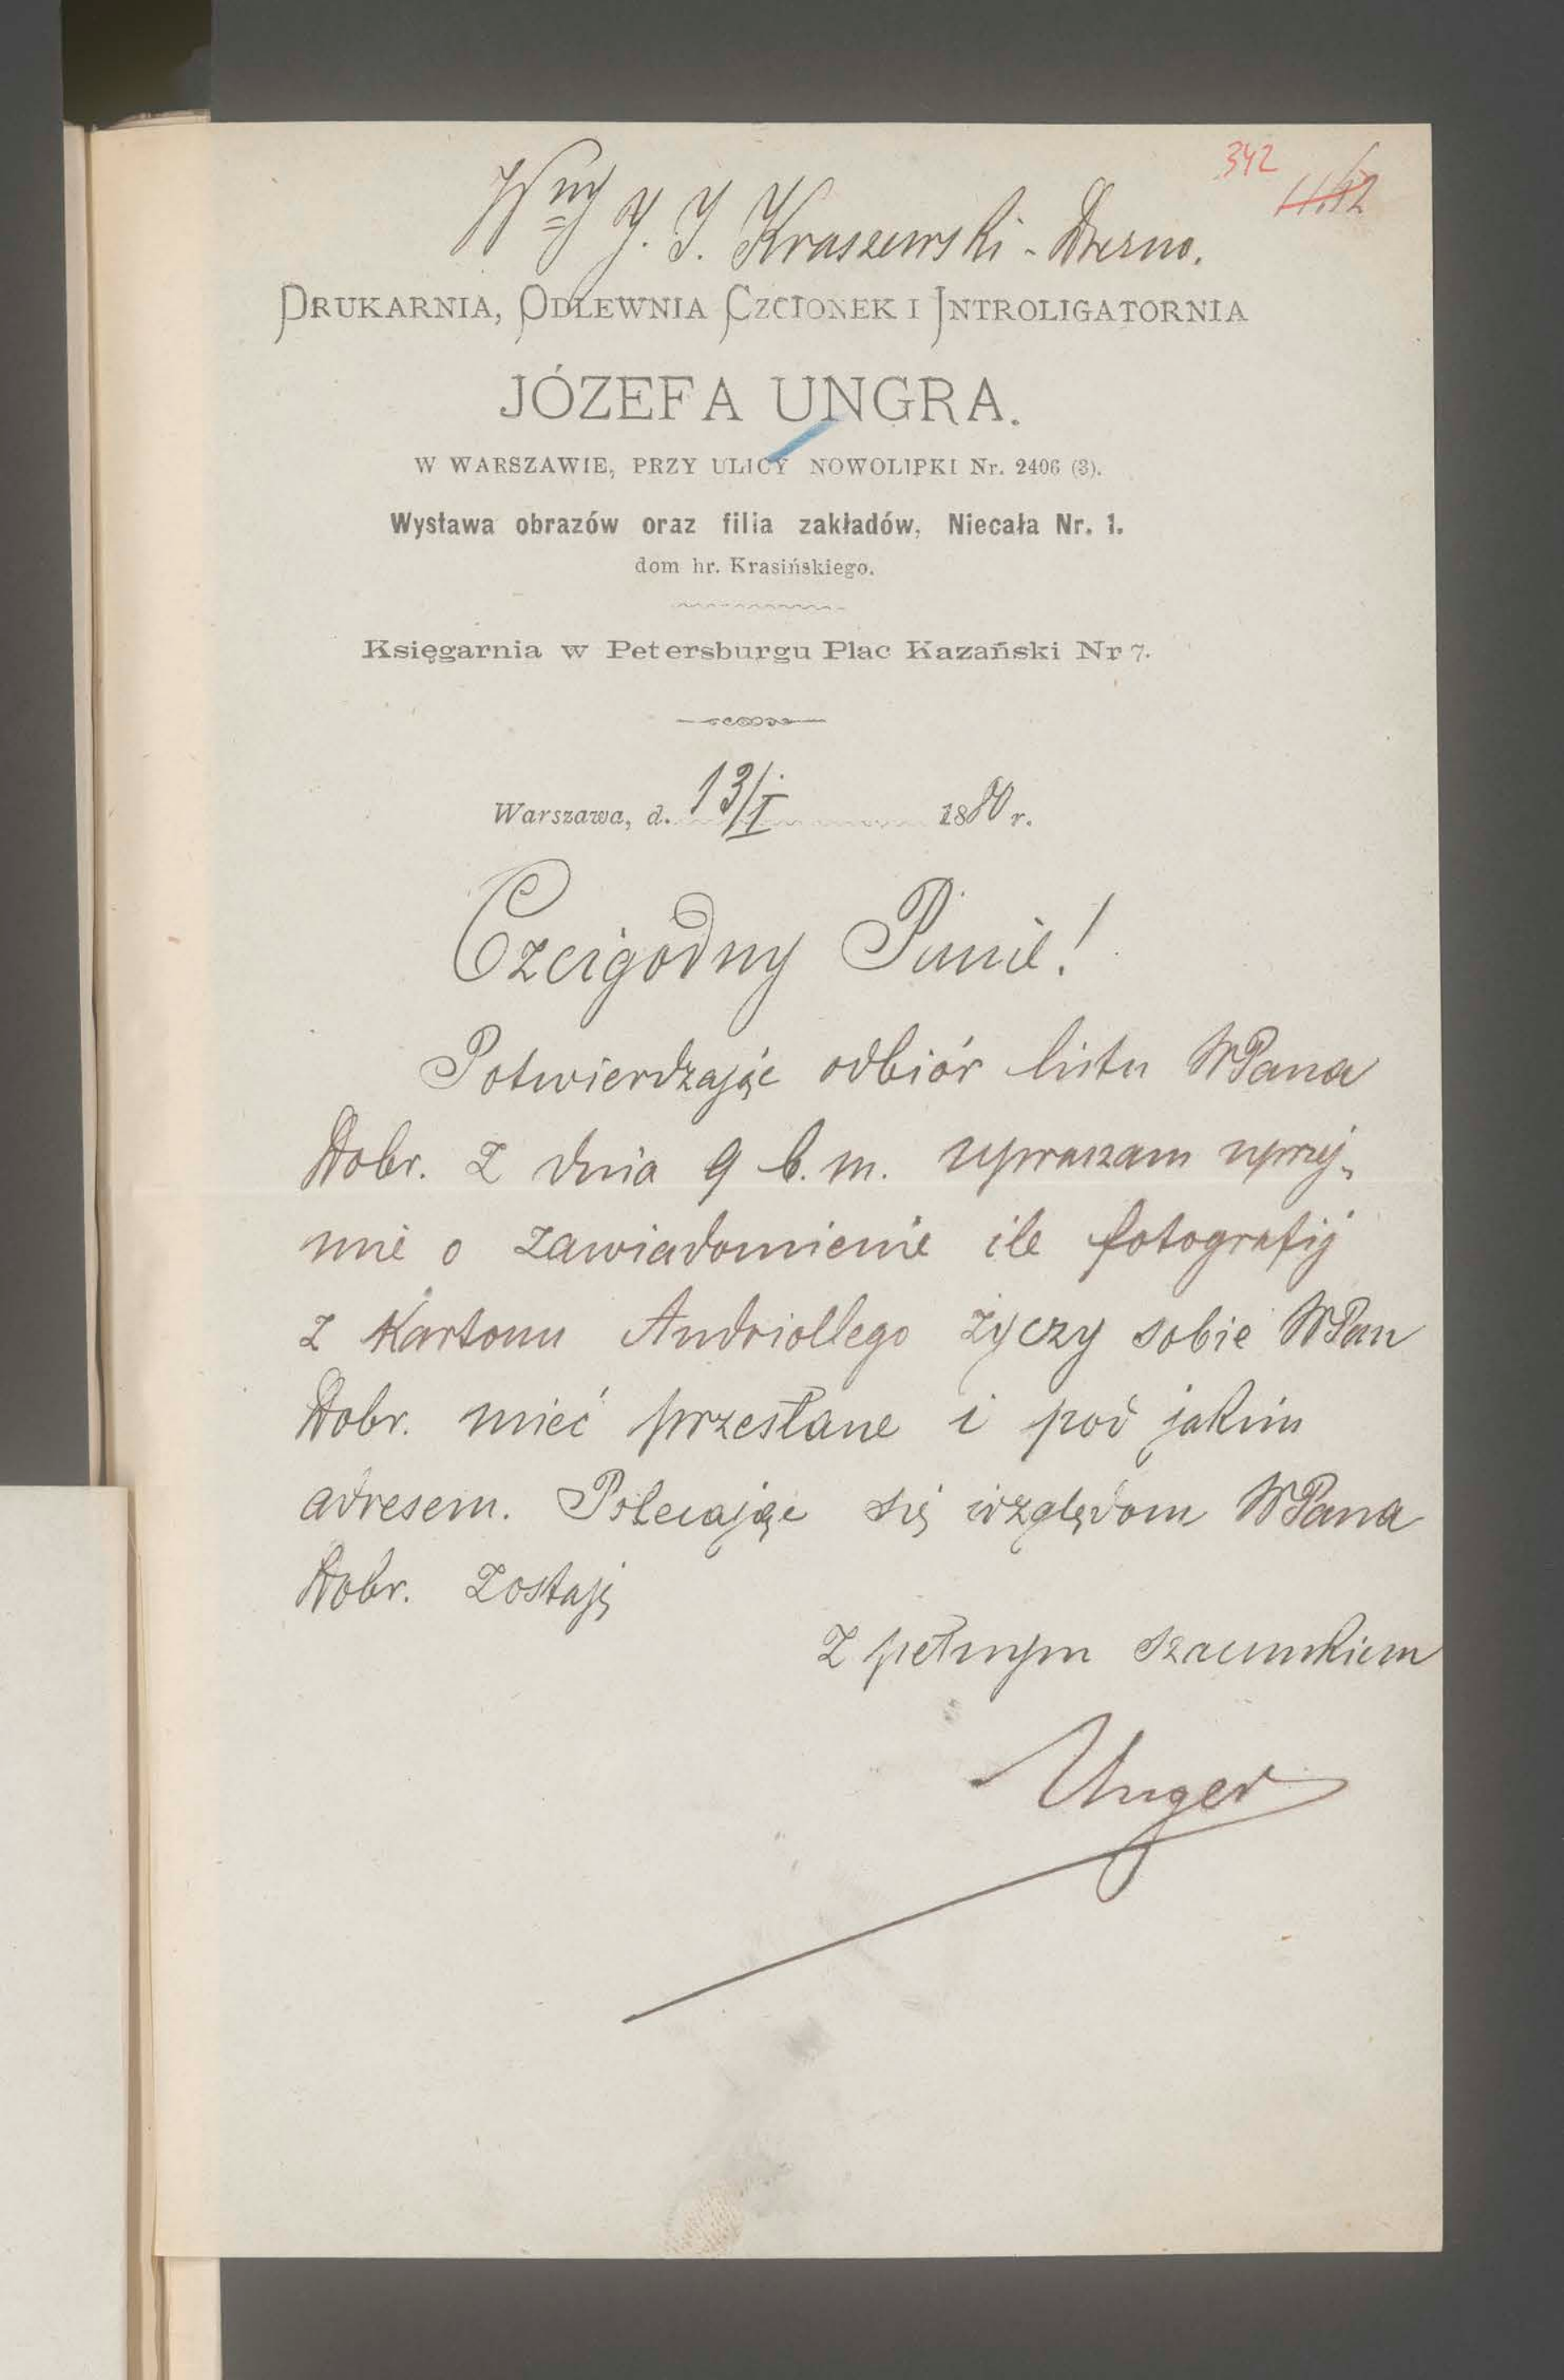 342
Wny J. I. Kraszewski - Drezno.
DRUKARNIA, ODLEWNIA CZCIONEK I INTROLIGATORNIA
JÓZEFA UNGRA.
W WARSZAWIE, PRZY ULICY NOWOLIPKI Nr. 2406 (3).
Wystawa obrazów oraz filia zakładów, Niecała Nr. 1.
dom hr. Krasińskiego.
Księgarnia w Petersburgu Plac Kazański Nr 7.
Warszawa, d. 13/I 1880 r.
Czcigodny Panie!
Potwierdzając odbiór listu WPana
Dobr. z dnia 9 b. m. upraszam uprzej-
mie o zawiadomienie ile fotografij
z Kartonu Andriollego życzy sobie WPan
Dobr. mieć przesłane i pod jakim
adresem. Polecając się względom WPana
Dobr. zostaję
z pełnym szacunkiem
Unger